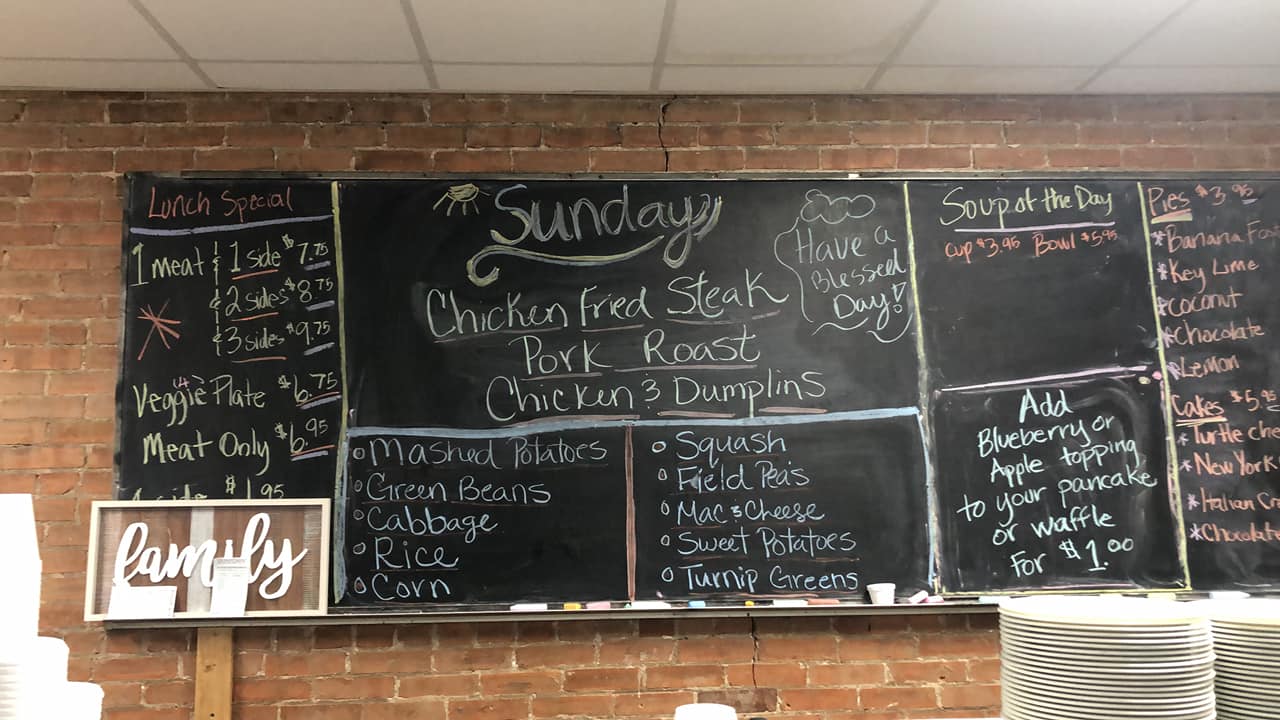 Lunch Special
1 meat & 1 side $7.75
& 2 sides $8.75
& 3 sides $9.75
Veggie Plate $6.75
4
Meat Only $6.95
side $1.95
family
Sunday
Have a
Blessed
Day!
Chicken Fried Steak
Pork Roast
Chicken & Dumplins
Mashed Potatoes
Green Beans
Cabbage
Rice
Corn
Squash
Field Pea's
Mac & Cheese
Sweet Potatoes
Turnip Greens
Soup of the Day
Cup $3.95 Bowl $5.95
Add
Blueberry or
Apple topping
to your pancake
or waffle
For $1.00
Pies $3.95
*Banana
*Key Lime
*Coconut
*Chocolate
*Lemon
Cakes $5.95
*Turtle
*New York
*Italian
*Chocolate